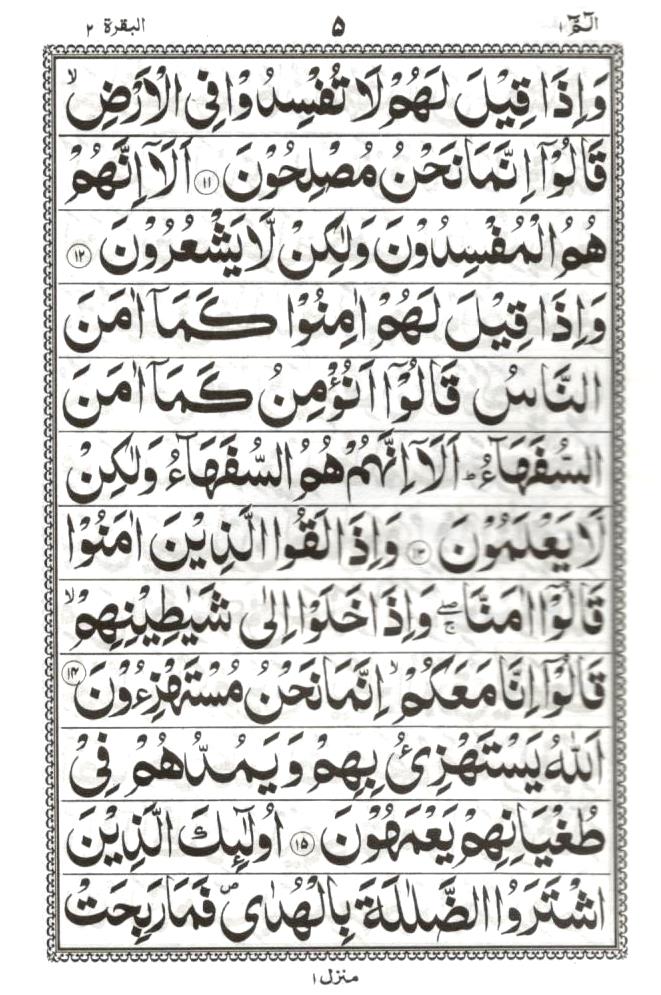 الٓمّٓ ١ ٥ البقرة ٢
وَاِذَا قِيْلَ لَهُمْ لَا تُفْسِدُوْا فِى الْاَرْضِ ۙ
قَالُوْٓا اِنَّمَا نَحْنُ مُصْلِحُوْنَ ﴿١١﴾ اَلَآ اِنَّهُمْ
هُمُ الْمُفْسِدُوْنَ وَلٰكِنْ لَّا يَشْعُرُوْنَ ﴿١٢﴾
وَاِذَا قِيْلَ لَهُمْ اٰمِنُوْا كَمَآ اٰمَنَ
النَّاسُ قَالُوْٓا اَنُؤْمِنُ كَمَآ اٰمَنَ
السُّفَهَآءُ ؕ اَلَآ اِنَّهُمْ هُمُ السُّفَهَآءُ وَلٰكِنْ
لَّا يَعْلَمُوْنَ ﴿١٣﴾ وَاِذَا لَقُوا الَّذِيْنَ اٰمَنُوْا
قَالُوْٓا اٰمَنَّا ۖۚ وَاِذَا خَلَوْا اِلٰى شَيٰطِيْنِهِمْ ۙ
قَالُوْٓا اِنَّا مَعَكُمْ ۙ اِنَّمَا نَحْنُ مُسْتَهْزِءُوْنَ ﴿١٤﴾
اَللّٰهُ يَسْتَهْزِئُ بِهِمْ وَيَمُدُّهُمْ فِيْ
طُغْيَانِهِمْ يَعْمَهُوْنَ ﴿١٥﴾ اُولٰٓئِكَ الَّذِيْنَ
اشْتَرَوُا الضَّلٰلَةَ بِالْهُدٰى ۪ فَمَا رَبِحَتْ
منزل ١